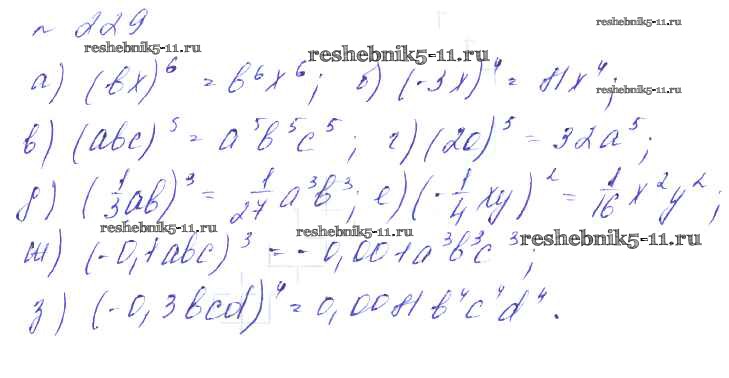 № 229
reshebnik5-11.ru
reshebnik5-11.ru
reshebnik5-11.ru
а) (bx)⁶ = b⁶x⁶; б) (-3x)⁴ = 81x⁴;
reshebnik5-11.ru
в) (abc)⁵ = a⁵b⁵c⁵; г) (2a)⁵ = 32a⁵;
д) (1/3ab)³ = 1/27 a³b³; е) (-1/4xy)² = 1/16 x²y²;
reshebnik5-11.ru
reshebnik5-11.ru
reshebnik5-11.ru
ж) (-0,1abc)³ = -0,001a³b³c³;
з) (-0,3bcd)⁴ = 0,0081b⁴c⁴d⁴.